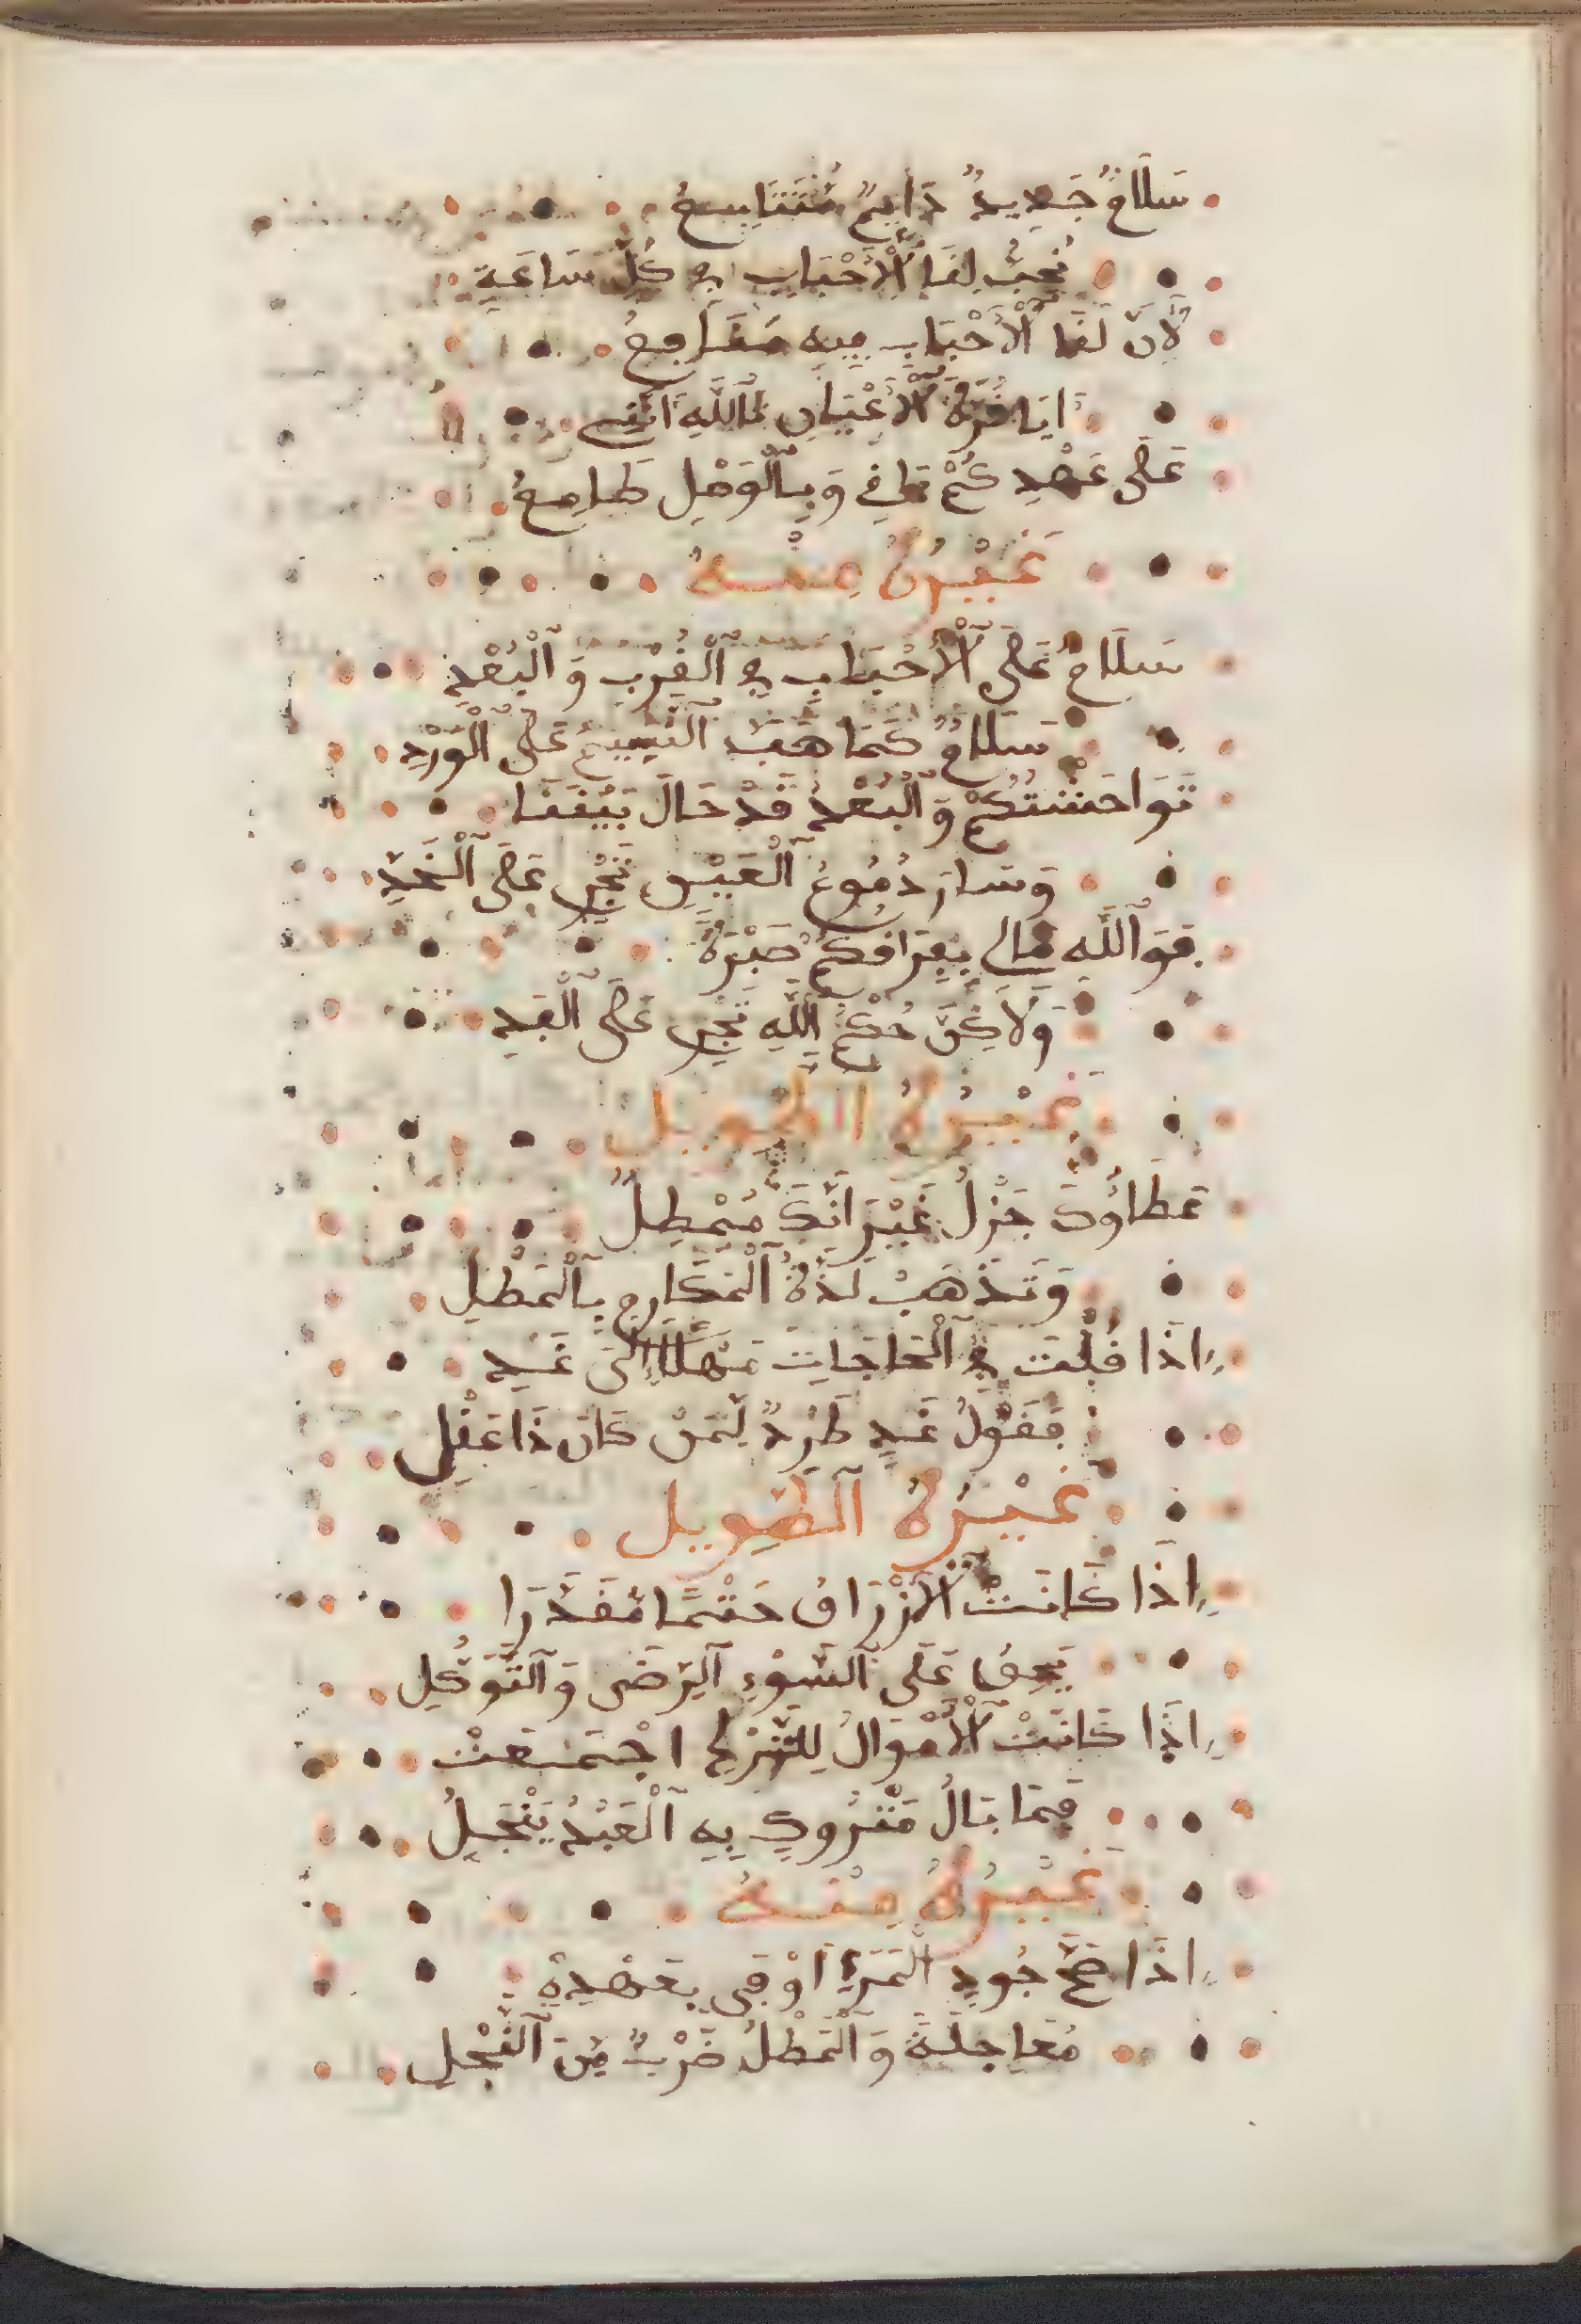 سَلَامٌ جَدِيدٌ دَايِمٌ مُتَتَابِعُ
نُحِبُّ لِقَا الْأَحْبَابِ فِي كُلِّ سَاعَةٍ
لِأَنَّ لَقَا الْأَحْبَابِ فِيهِ مَنَافِعُ
أَيَا قُرَّةَ الْأَعْيَانِ بِاللَّهِ أَنَّنِي
عَلَى عَهْدِكُمْ بَاقٍ وَبِالْوَصْلِ طَامِعُ
غَيْرُهُ مِنْهُ
سَلَامٌ عَلَى الْأَحْبَابِ فِي الْقُرْبِ وَالْبُعْدِ
سَلَامٌ كَمَا هَبَّ النَّسِيمُ عَلَى الْوَرْدِ
تَوَاحَشْتُكُمْ وَالْبُعْدُ قَدْ حَالَ بَيْنَنَا
وَسَارَ دُمُوعُ الْعَيْنِ تَجْرِ عَلَى الْخَدِّ
فَوَاللَّهِ مَا لِي بِفِرَاقِكُمُ صَبْرَةٌ
وَلَاكِنَّ حُكْمَ اللَّهِ تَجْرِ عَلَى الْعَبْدِ
غَيْرُهُ الطَّوِيل
عَطَاؤُكَ جَزْلٌ غَيْرَ أَنَّكَ مُمْطِلٌ
وَتَذْهَبْ لَذَّةُ الْمَكَارِمِ بِالْمَطْلِ
إِذَا قُلْتَ فِي الْحَاجَاتِ مَهْلًا إِلَى غَدٍ
فَقَوْلُ غَدٍ طَرْدٌ لِمَنْ كَانَ ذَا عَقْلِ
غَيْرُهُ الطَّوِيل
إِذَا كَانَتْ الْأَرْزَاقُ حَتْمًا مُقَدَّرَا
يَحِقُّ عَلَى السَّوْءِ الرِّضَى وَالتَّوَكُّلِ
إِذَا كَانَتْ الْأَمْوَالُ لِلتَّرْكِ اجْتَمَعَتْ
فَمَا بَالُ مَتْرُوكٍ بِهِ الْعَبْدُ يَبْخَلُ
غَيْرُهُ مِنْهُ
إِذَا صَحَّ جُودِ الْمَرْءِ أَوْفَى بِعَهْدِهِ
مُعَاجَلَةً وَالْمَطْلُ ضَرْبٌ مِنَ الْبُخْلِ